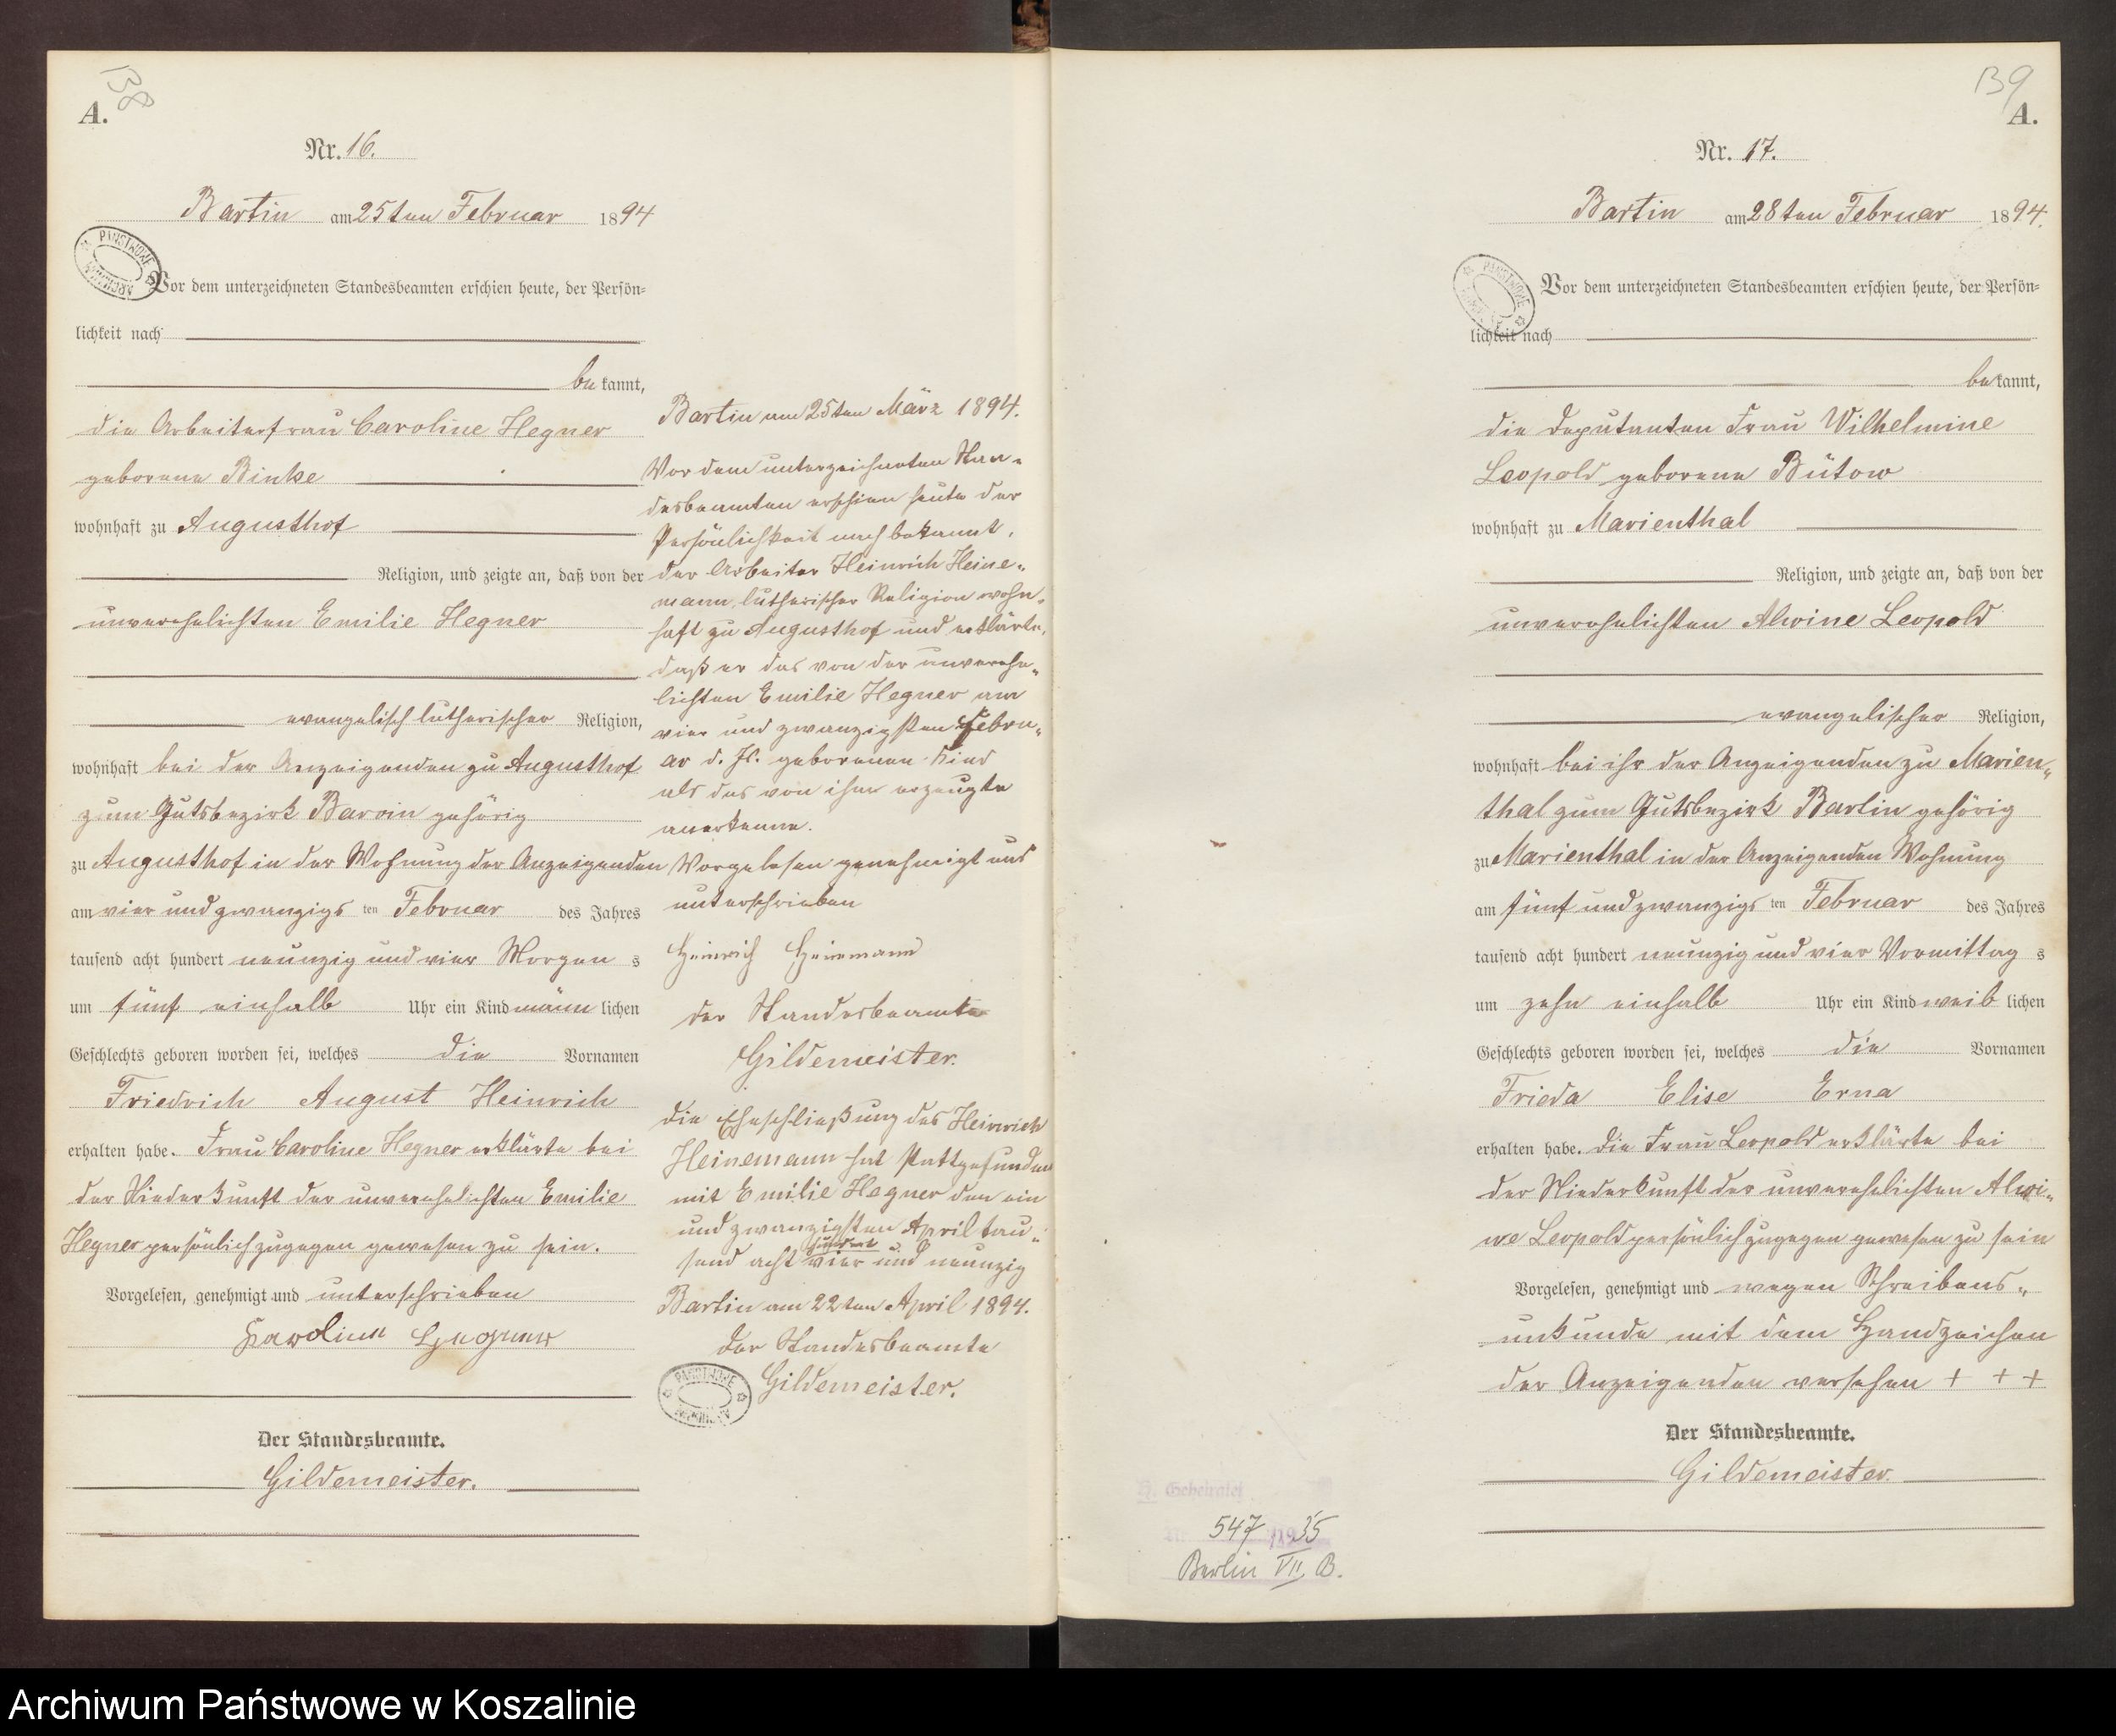 138
A.
Nr. 16.
Bartin am 25ten Februar 1894
Vor dem unterzeichneten Standesbeamten erschien heute, der Persön-
lichkeit nach
be kannt,
die Arbeiterfrau Caroline Hegner
geborene Binke
wohnhaft zu Augusthof
Religion, und zeigte an, daß von der
unverehelichten Emilie Hegner
evangelisch lutherischer Religion,
wohnhaft bei der Anzeigenden zu Augusthof
zum Gutsbezirk Barvin gehörig
zu Augusthof in der Wohnung der Anzeigenden
am vier und zwanzigs ten Februar des Jahres
tausend acht hundert neunzig und vier Morgen s
um fünf einhalb Uhr ein Kind männ lichen
Geschlechts geboren worden sei, welches die Vornamen
Friedrich August Heinrich
erhalten habe. Frau Caroline Hegner erklärte bei
der Niederkunft der unverehelichten Emilie
Hegner persönlich zugegen gewesen zu sein.
Vorgelesen, genehmigt und unterschrieben
Karoline Hegner
Der Standesbeamte.
Gildemeister.
Bartin am 25ten März 1894.
Vor dem unterzeichneten Stan-
desbeamten erschien heute der
Persönlichkeit nach bekannt,
der Arbeiter Heinrich Heine-
mann, lutherischer Religion wohn-
haft zu Augusthof und erklärte,
daß er das von der unverehe-
lichten Emilie Hegner am
vier und zwanzigsten Febru-
ar d. Js. geborenen Kind
als das von ihm erzeugte
anerkenne.
Vorgelesen genehmigt und
unterschrieben
Heinrich Heinemann
der Standesbeamte
Gildemeister.
Die Eheschließung des Heinrich
Heinemann hat stattgefunden
mit Emilie Hegner den ein
und zwanzigsten April tau-
hundert
send acht vier und neunzig
Bartin am 22ten April 1894.
der Standesbeamte
Gildemeister.
139
A.
Nr. 17.
Bartin am 28ten Februar 1894.
Vor dem unterzeichneten Standesbeamten erschien heute, der Persön-
lichkeit nach
be kannt,
die Deputanten Frau Wilhelmine
Leopold geborene Bütow
wohnhaft zu Marienthal
Religion, und zeigte an, daß von der
unverehelichten Alwine Leopold
evangelischer Religion,
wohnhaft bei ihr der Anzeigenden zu Marien-
thal zum Gutsbezirk Bartin gehörig
zu Marienthal in der Anzeigenden Wohnung
am fünf und zwanzigs ten Februar des Jahres
tausend acht hundert neunzig und vier Vormittag s
um zehn einhalb Uhr ein Kind weib lichen
Geschlechts geboren worden sei, welches die Vornamen
Frieda Elise Erna
erhalten habe. Die Frau Leopold erklärte bei
der Niederkunft der unverehelichten Alwi-
ne Leopold persönlich zugegen gewesen zu sein
Vorgelesen, genehmigt und wegen Schreibens-
unkunde mit dem Handzeichen
der Anzeigenden versehen + + +
Der Standesbeamte.
Gildemeister.
547 1935
Berlin VII B.
Archiwum Państwowe w Koszalinie